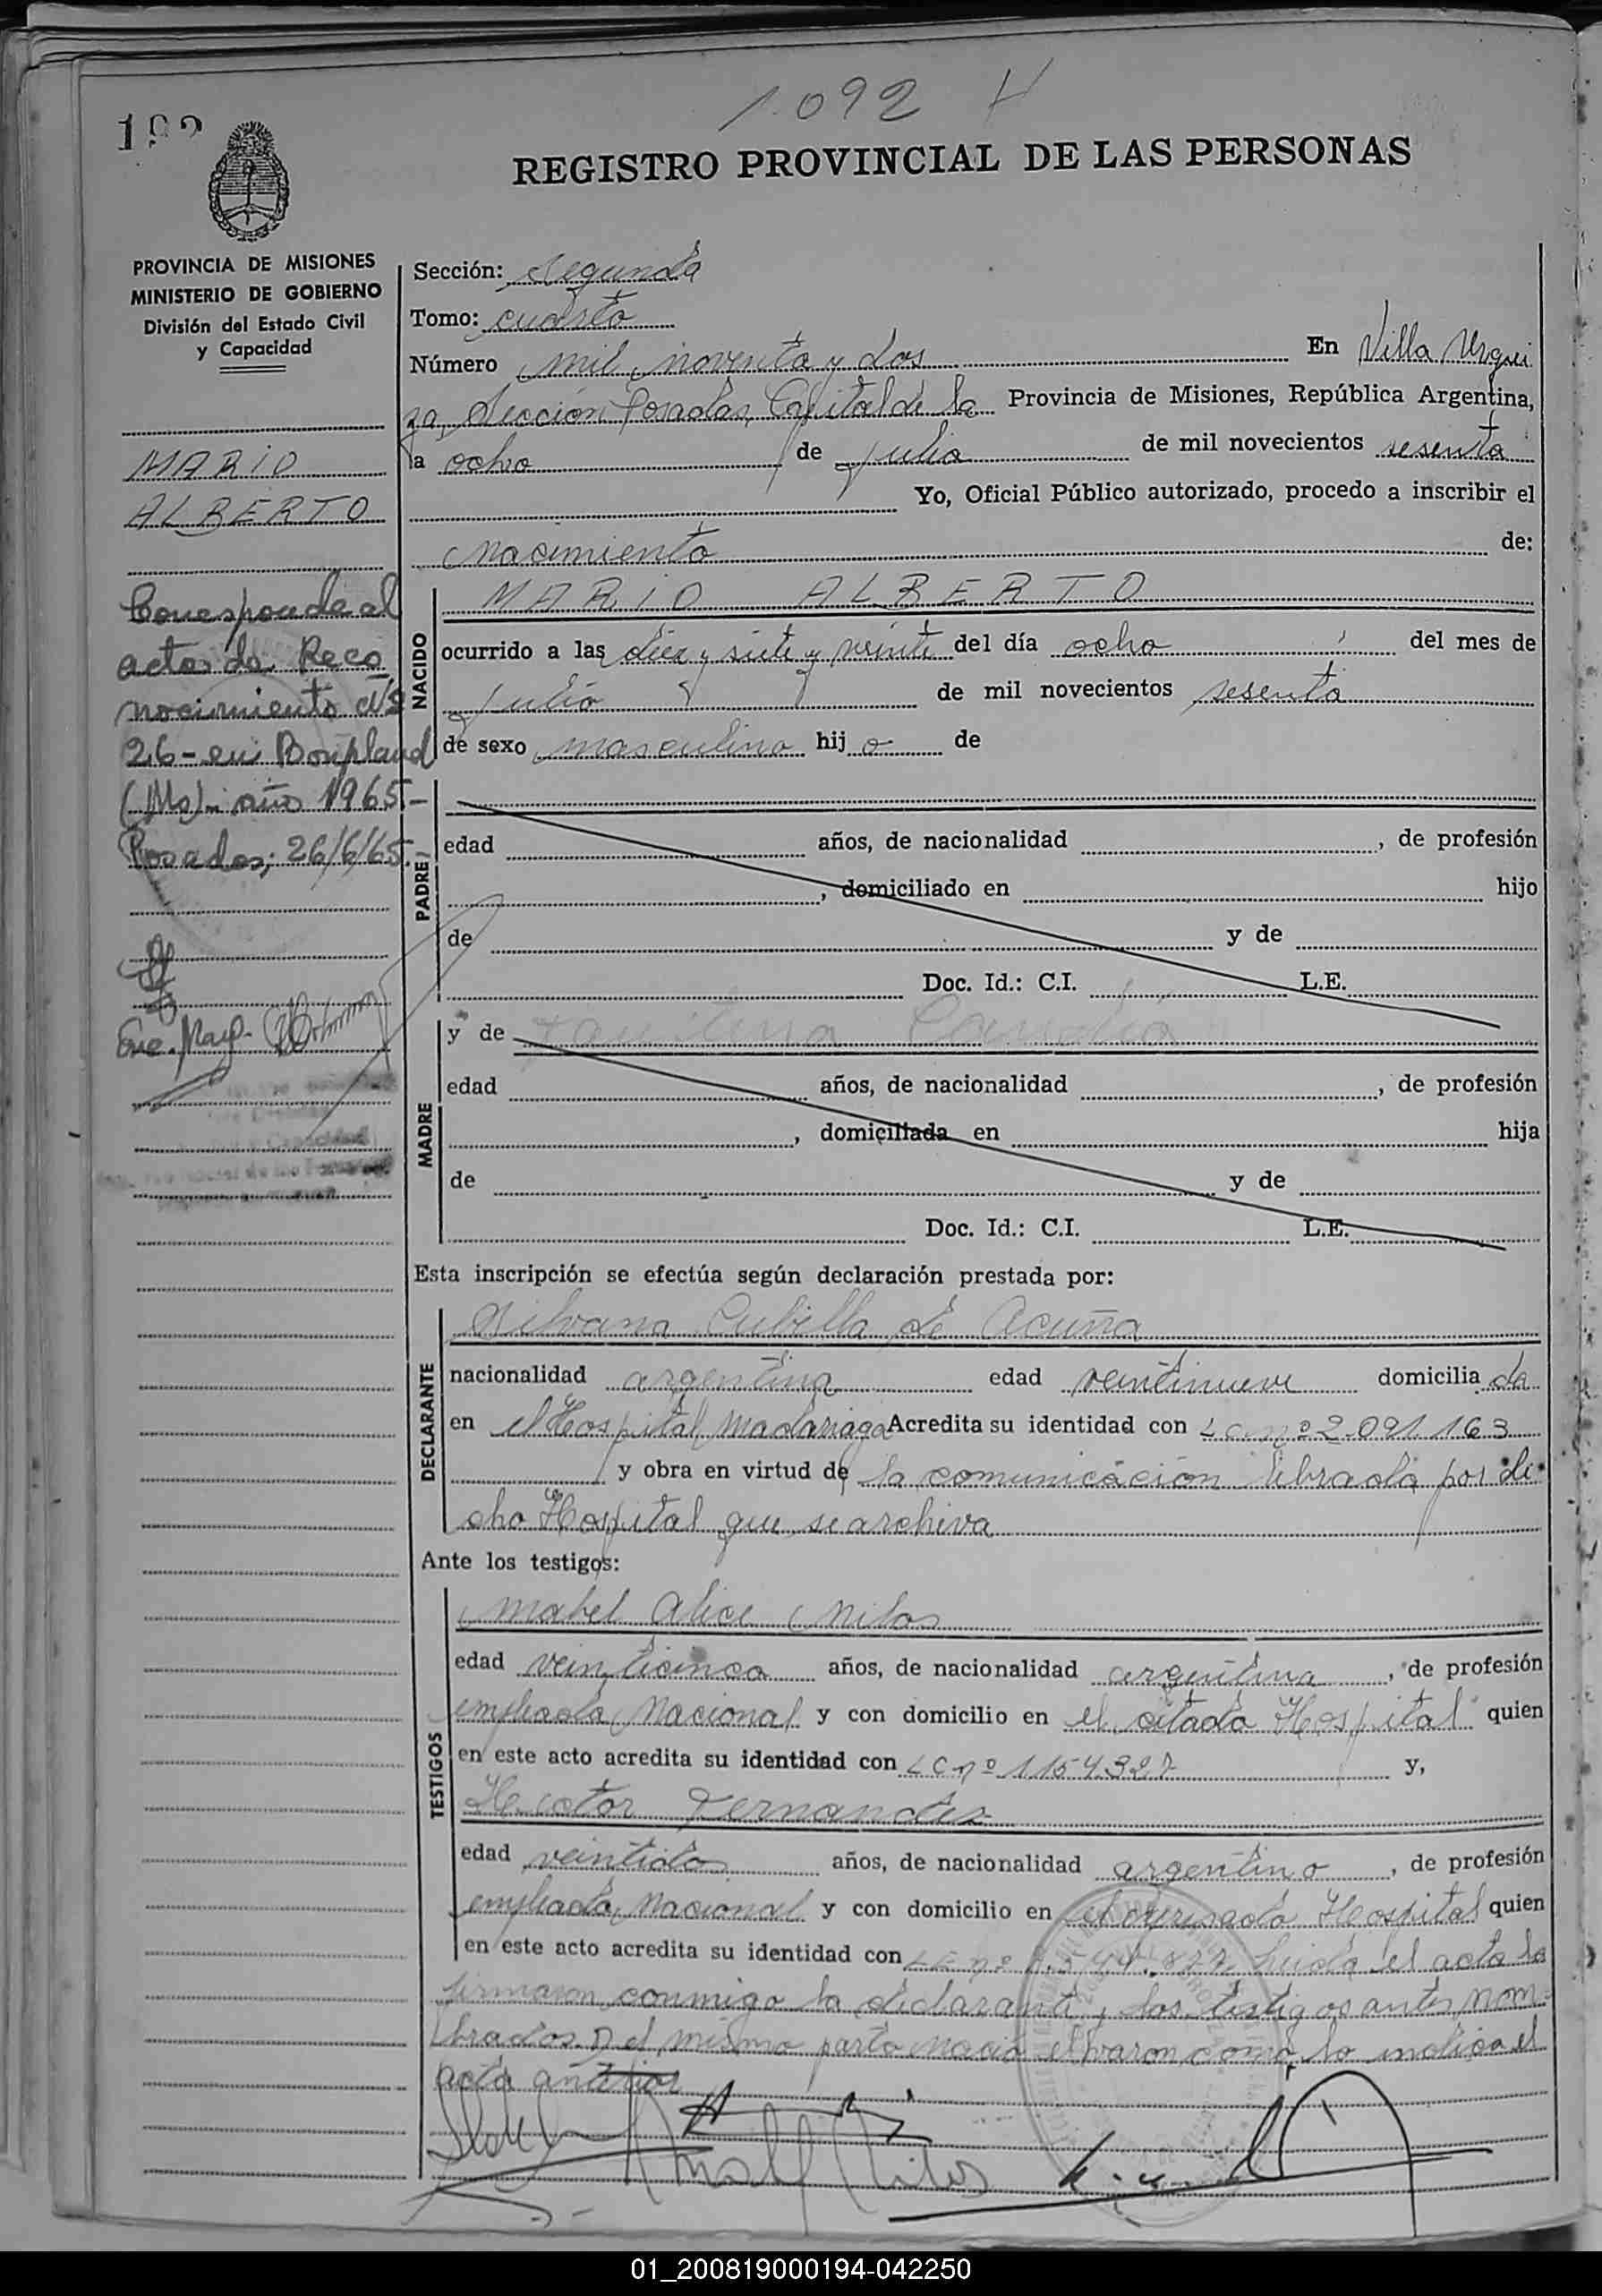 1.092
192
REGISTRO PROVINCIAL DE LAS PERSONAS
PROVINCIA DE MISIONES
MINISTERIO DE GOBIERNO
División del Estado Civil
y Capacidad
MARIO
ALBERTO
Corresponde al
acta de Reco
nocimiento nº
26-en Bonpland
(Ms)- año 1965-
Posadas; 26/6/65.
Enc. May.
Sección: Segunda
Tomo: cuarto
Número mil noventa y dos En Villa Urqui
za, Sección Posadas, Capital de la Provincia de Misiones, República Argentina,
a ocho de julio de mil novecientos sesenta
Yo, Oficial Público autorizado, procedo a inscribir el
nacimiento de:
NACIDO
MARIO ALBERTO
ocurrido a las diez y siete y veinte del día ocho del mes de
julio de mil novecientos sesenta
de sexo masculino hij o de
PADRE
edad años, de nacionalidad , de profesión
, domiciliado en hijo
de y de
Doc. Id.: C.I. L.E.
MADRE
y de
edad años, de nacionalidad , de profesión
, domiciliada en hija
de y de
Doc. Id.: C.I. L.E.
Esta inscripción se efectúa según declaración prestada por:
DECLARANTE
Silvana Cubilla de Acuña
nacionalidad argentina edad veintinueve domicilia da
en el Hospital Madariaga Acredita su identidad con LC nº 2.091.163
y obra en virtud de la comunicación librada por di
cho Hospital que se archiva
Ante los testigos:
TESTIGOS
Mabel Alice Milos
edad veinticinco años, de nacionalidad argentina, de profesión
empleada Nacional y con domicilio en el citado Hospital quien
en este acto acredita su identidad con LC nº 1154327 y,
Hector Fernandez
edad veintidos años, de nacionalidad argentino, de profesión
empleado Nacional y con domicilio en el Hospital quien
en este acto acredita su identidad con LE nº Leida el acta la
firmaron conmigo la declarante y los testigos antes nom-
brados. Del mismo parto nació el varon como lo indica el
acta anterior
Mabel Milos
01_200819000194-042250